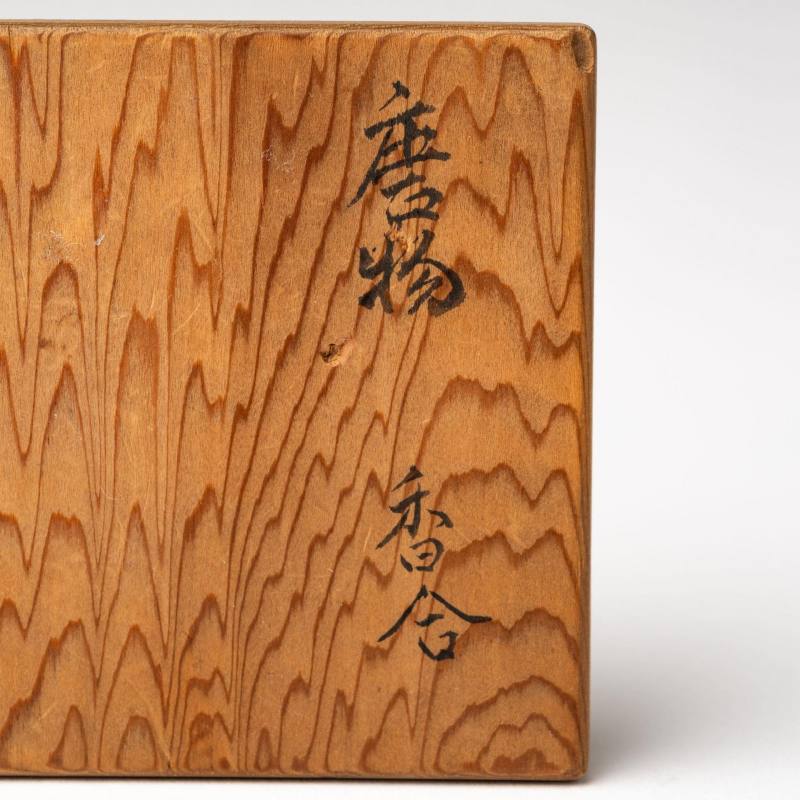 唐物
香合